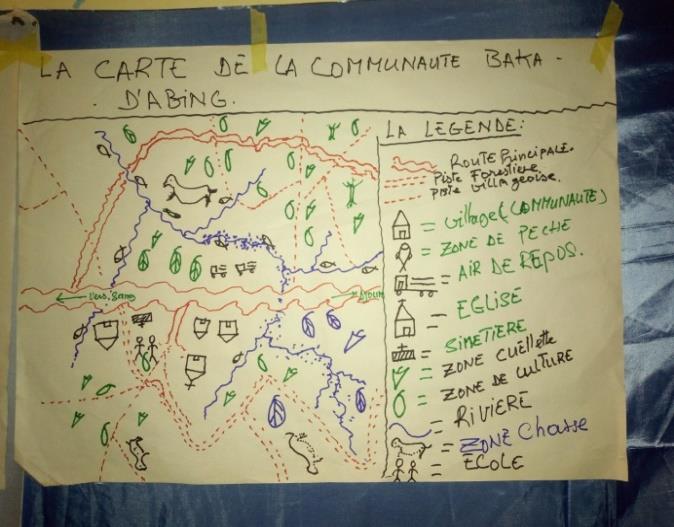 LA CARTE DE LA COMMUNAUTE BAKA
D'ABING.
LA LEGENDE:
ROUTE PRINCIPALE.
Piste Forestiere.
Piste Villageoise.
= Village (COMMUNAUTÉ)
= ZONE DE PECHE
= AIR DE REPOS.
= EGLISE
= SIMETIERE
= ZONE CUEILLETTE
= ZONE DE CULTURE
= RIVIERE
= ZONE Chasse
= ECOLE